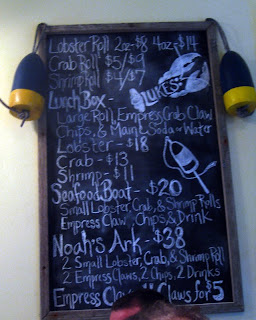 Lobster Roll 2oz-$8 4oz-$14
Crab Roll $5/$9
Shrimp Roll $4/$7
LUKE'S
Lunch Box -
Large Roll, Empress Crab Claw
Chips, & Maine Soda or Water
Lobster - $18
Crab - $13
Shrimp - $11
Seafood Boat - $20
Small Lobster, Crab, & Shrimp Rolls
Empress Claw, Chips, & Drink
Noah's Ark - $38
2 Small Lobster, Crab, & Shrimp Roll
2 Empress Claws, 2 Chips, 2 Drinks
Empress Claws for $5